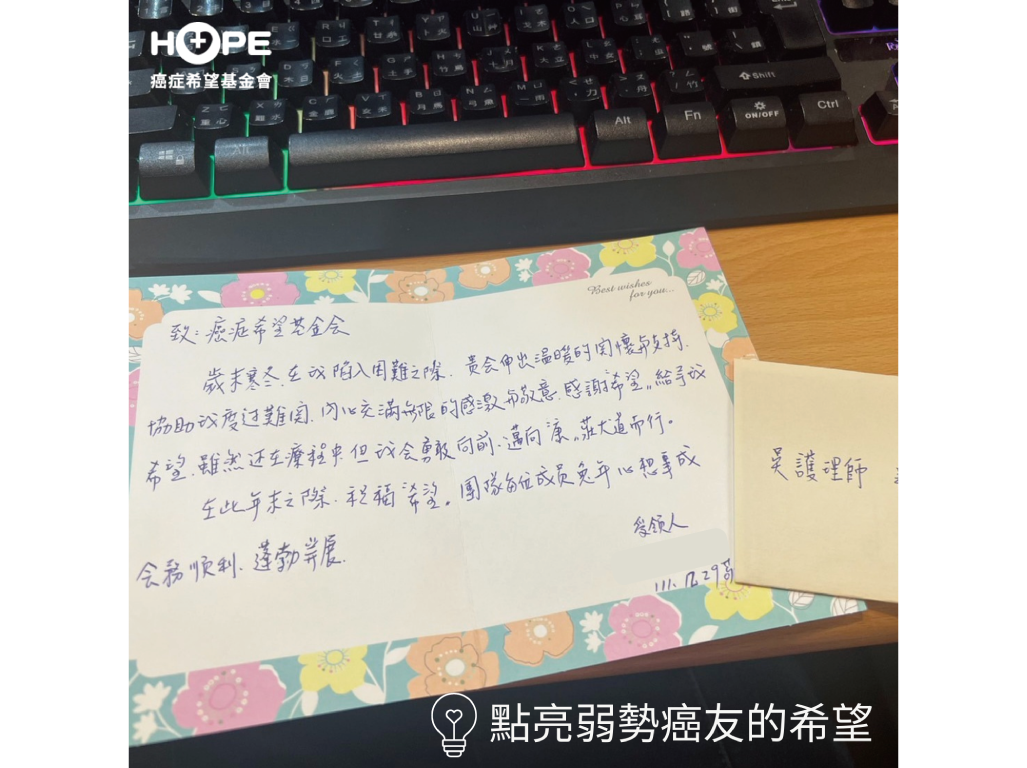 HOPE
癌症希望基金會
Alt
Fn
ON/OFF
Ctrl
Shift
Alt
Best wishes
for you...
致：癌症希望基金会
歲末寒冬、在我陷入困難之際、貴会伸出温暖的関懷與支持、
協助我度过難関、内心充滿無限的感激與敬意、感謝〝希望〞給予我
希望、雖然还在療程中、但我会勇敢向前、邁向〝康〞莊大道而行。
在此年末之際、祝福〝希望〞團隊每位成员兔年心想事成
会務順利、蓬勃發展、
受領人
111. 12. 29
吳護理師
點亮弱勢癌友的希望